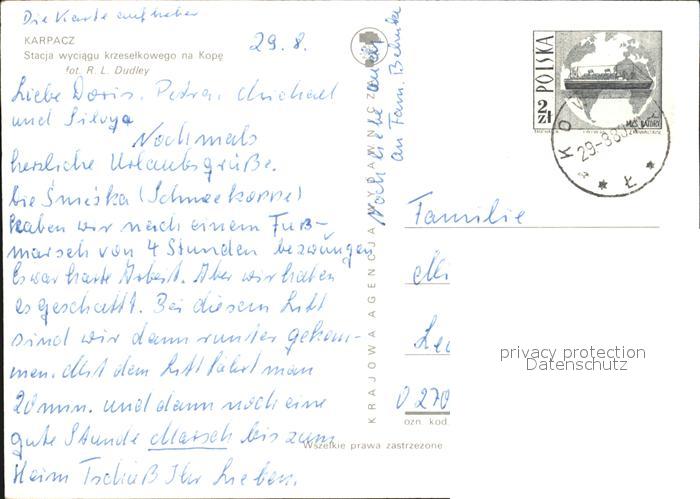 Die Karte aufheben
KARPACZ
Stacja wyciągu krzesełkowego na Kopę
fot. R. L. Dudley
29. 8.
Liebe Doris. Petra. Michael
und Silvya
Nochmals
herzliche Urlaubsgrüße.
Die Śnieżka (Schneekoppe)
haben wir nach einem Fuß-
marsch von 4 Stunden bezwungen
Es war harte Arbeit. Aber wir haben
es geschafft. Bei diesem Lift
sind wir dann runter gekom-
men. Mit dem Lift fährt man
20 min. und dann noch eine
gute Stunde Marsch bis zum
Heim Tschüß Ihr Lieben.
KRAJOWA AGENCJA WYDAWNICZA
an Fam.
POLSKA
2 ZŁ
M/S BATORY
29-8
Familie
Mi
O 270
ozn. kod.
Wszelkie prawa zastrzeżone
privacy protection
Datenschutz